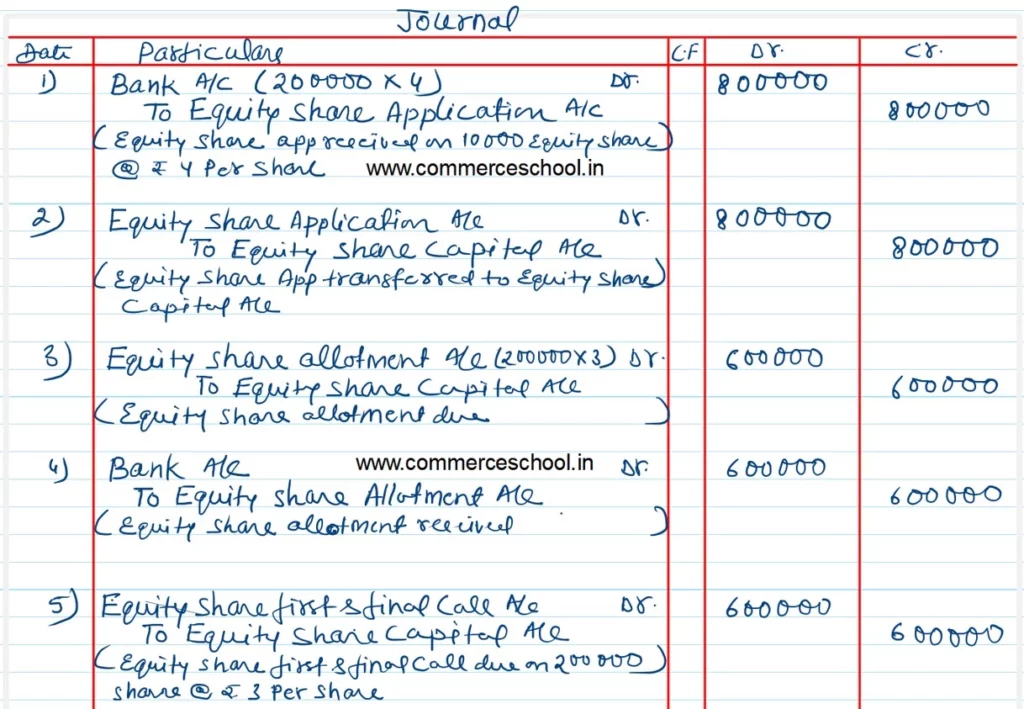 Journal
Date Particulars C.F Dr. Cr.
1) Bank A/c (200000 × 4) Dr. 800000
To Equity Share Application A/c 800000
(Equity share app received on 10000 Equity share)
@ ₹ 4 Per Share www.commerceschool.in
2) Equity share Application A/c Dr. 800000
To Equity share Capital A/c 800000
(Equity share App transferred to Equity share)
Capital A/c
3) Equity share allotment A/c (200000×3) Dr. 600000
To Equity share Capital A/c 600000
(Equity share allotment due )
4) Bank A/c www.commerceschool.in Dr. 600000
To Equity share Allotment A/c 600000
(Equity share allotment received )
5) Equity share first & final Call A/c Dr. 600000
To Equity share Capital A/c 600000
(Equity share first & final Call due on 200000)
share @ ₹ 3 Per share